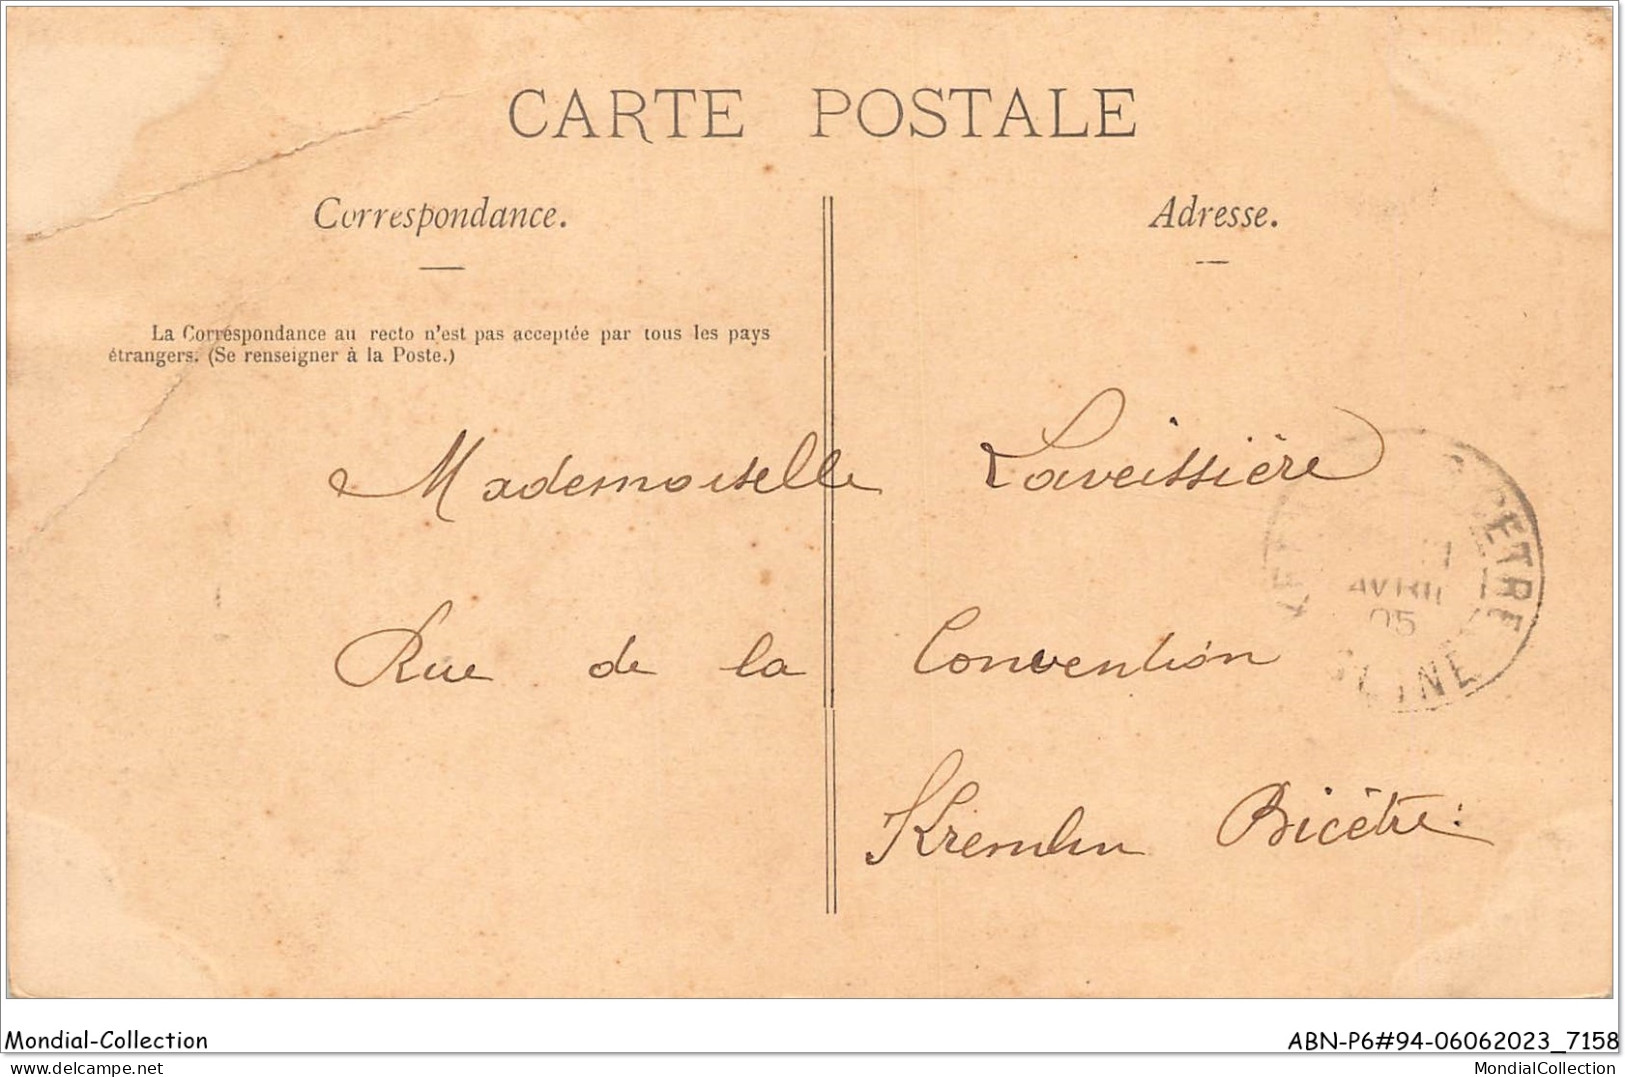 CARTE POSTALE
Correspondance.
Adresse.
La Correspondance au recto n'est pas acceptée par tous les pays
étrangers. (Se renseigner à la Poste.)
Mademoiselle Laveissière
Rue de la Convention
Kremlin Bicêtre
AVRIL
05
SEINE
Mondial-Collection
ABN-P6#94-06062023_7158
MondialCollection